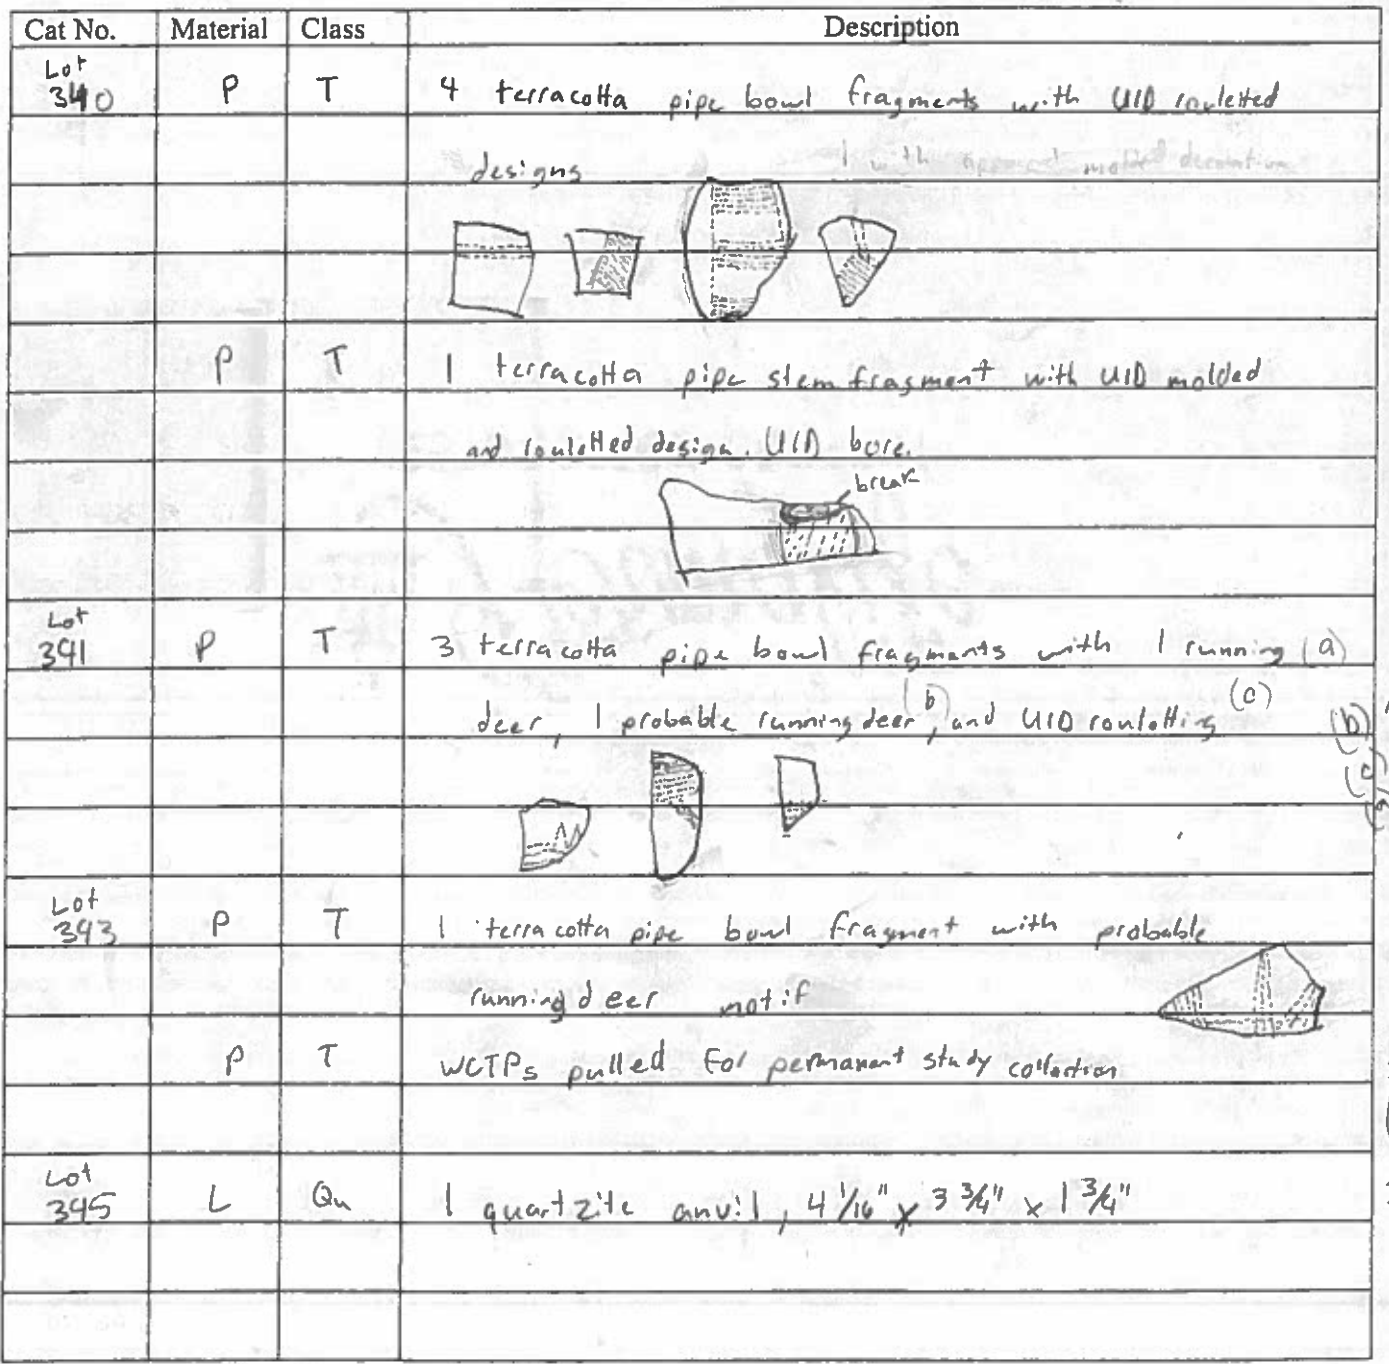 Cat No. Material Class Description
Lot
340 P T 4 terracotta pipe bowl fragments with UID rouletted
designs 1 with molded decoration
P T 1 terracotta pipe stem fragment with UID molded
and rouletted design. UID bore.
break
Lot
341 P T 3 terracotta pipe bowl fragments with 1 running (a)
deer, 1 probable running deer (b), and UID rouletting (c)
(b)
(c)
Lot
343 P T 1 terracotta pipe bowl fragment with probable
running deer motif
P T WCTPs pulled for permanent study collection
Lot
345 L Qu 1 quartzite anvil, 4 1/16" x 3 3/4" x 1 3/4"